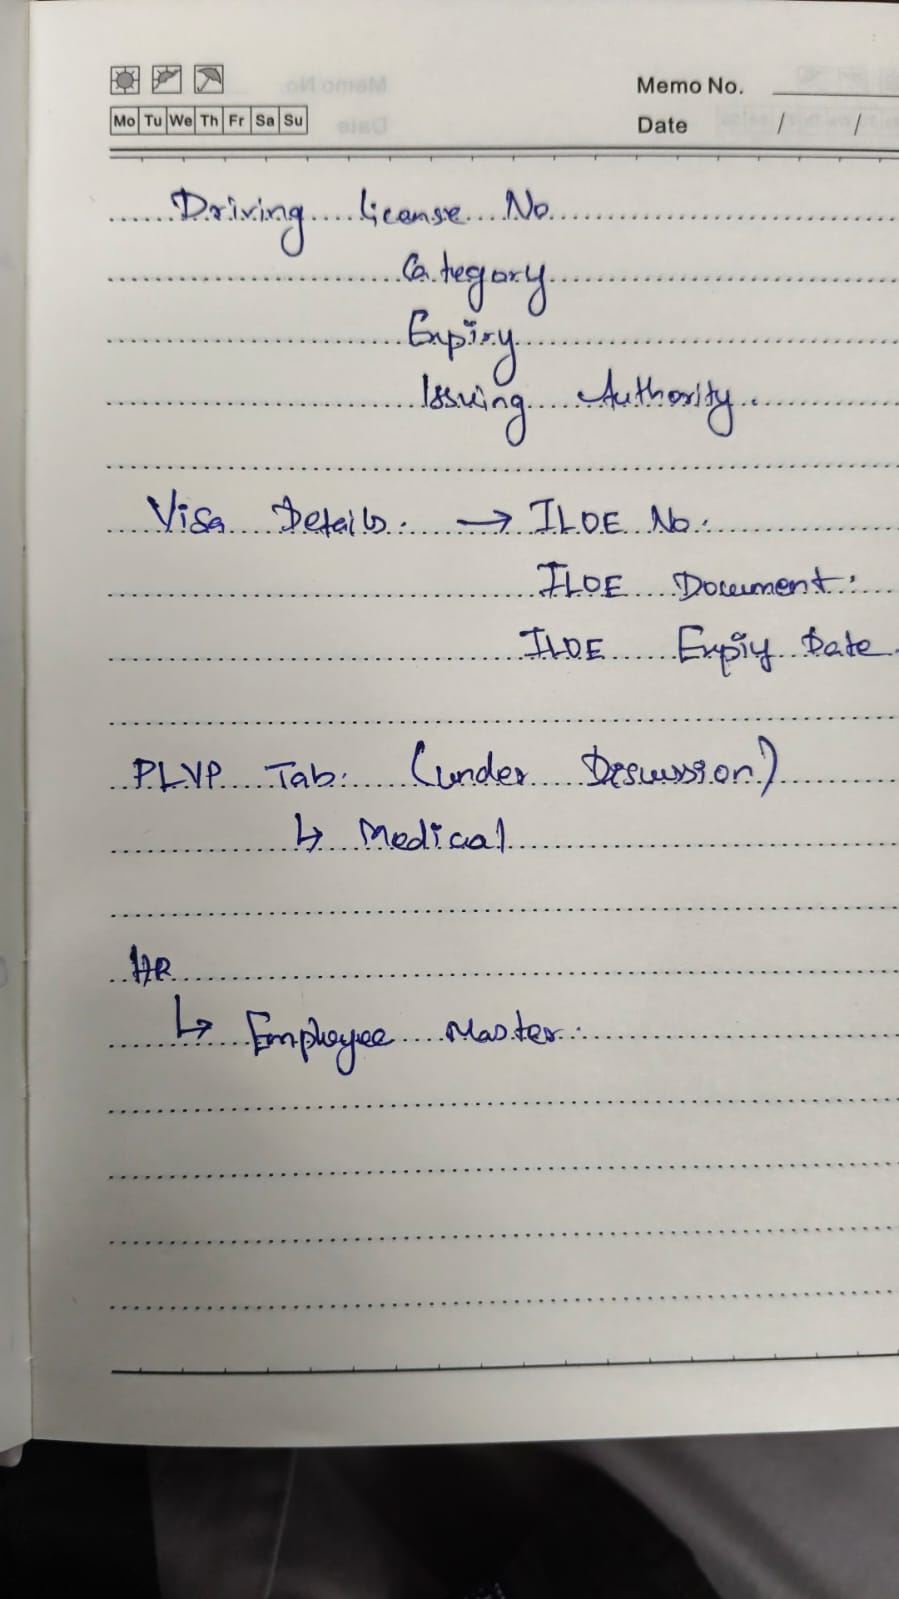 Memo No.
Mo Tu We Th Fr Sa Su
Date / /
Driving license No
Category
Expiry
Issuing Authority.
Visa Details: → ILOE No:
ILOE Document:
ILOE Expiy Date
PLVP Tab: (under Discussion)
↳ Medical
HR
↳ Employee Master: